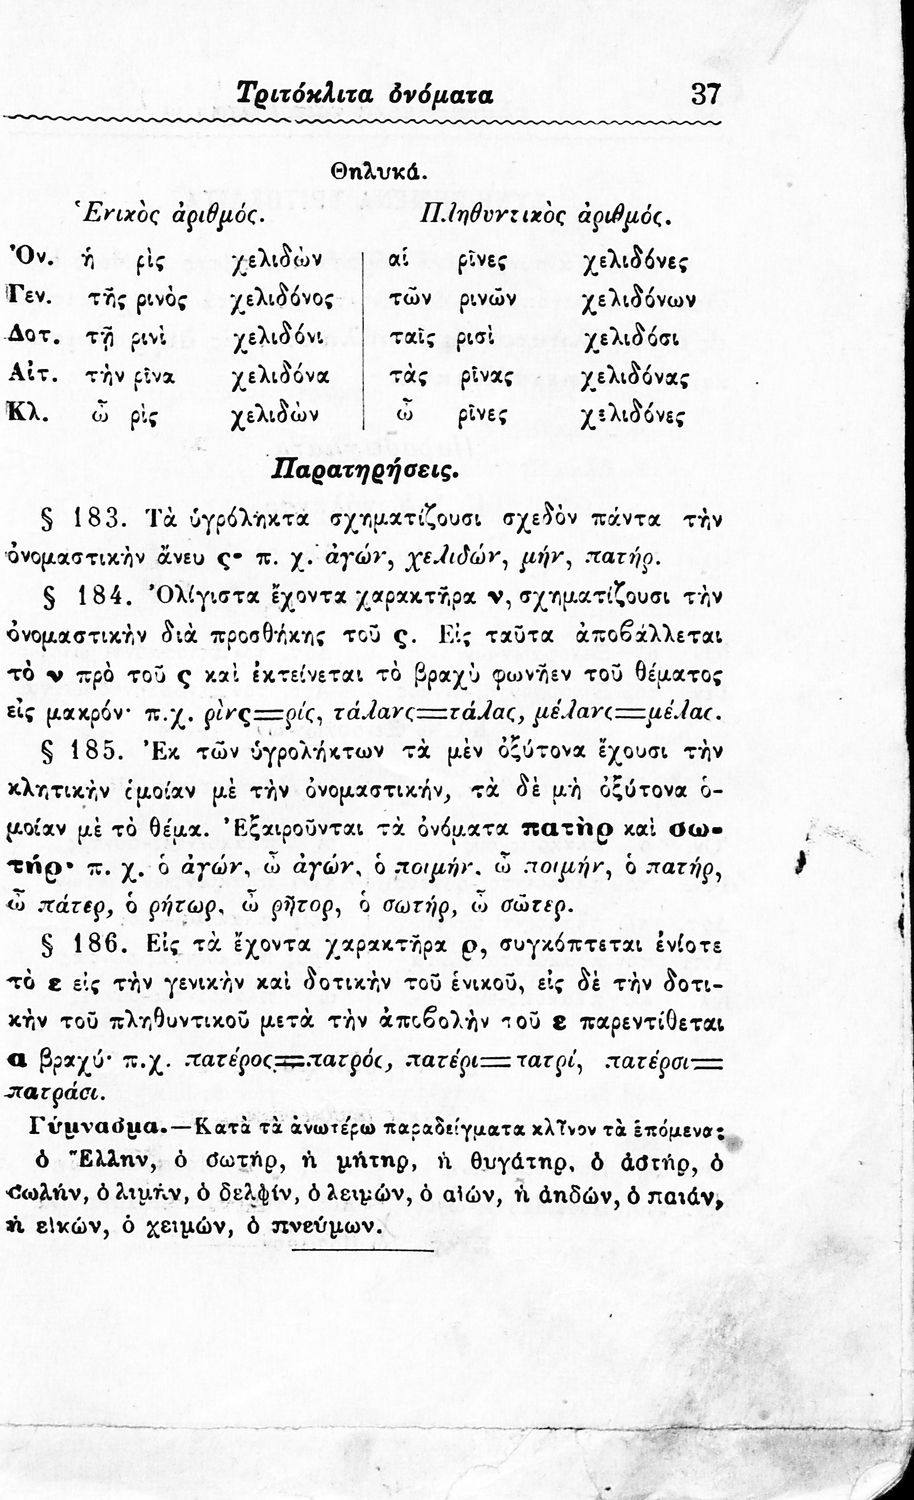 Τριτόκλιτα ὀνόματα 37
Θηλυκά.
Ἑνικὸς ἀριθμός. Πληθυντικὸς ἀριθμός.
Ὀν. ἡ ῥὶς χελιδὼν αἱ ῥῖνες χελιδόνες
Γεν. τῆς ρινὸς χελιδόνος τῶν ρινῶν χελιδόνων
Δοτ. τῇ ρινὶ χελιδόνι ταῖς ρισὶ χελιδόσι
Αἰτ. τὴν ρῖνα χελιδόνα τὰς ρῖνας χελιδόνας
Κλ. ὦ ρὶς χελιδὼν ὦ ρῖνες χελιδόνες
Παρατηρήσεις.
§ 183. Τὰ ὑγρόληκτα σχηματίζουσι σχεδὸν πάντα τὴν
ὀνομαστικὴν ἄνευ ς· π. χ. ἀγών, χελιδών, μήν, πατήρ.
§ 184. Ὀλίγιστα ἔχοντα χαρακτῆρα ν, σχηματίζουσι τὴν
ὀνομαστικὴν διὰ προσθήκης τοῦ ς. Εἰς ταῦτα ἀποβάλλεται
τὸ ν πρὸ τοῦ ς καὶ ἐκτείνεται τὸ βραχὺ φωνῆεν τοῦ θέματος
εἰς μακρόν· π.χ. ρὶνς=ρίς, τάλανς=τάλας, μέλανς=μέλας.
§ 185. Ἐκ τῶν ὑγρολήκτων τὰ μὲν ὀξύτονα ἔχουσι τὴν
κλητικὴν ὁμοίαν μὲ τὴν ὀνομαστικήν, τὰ δὲ μὴ ὀξύτονα ὁ-
μοίαν μὲ τὸ θέμα. Ἐξαιροῦνται τὰ ὀνόματα πατὴρ καὶ σω-
τήρ· π. χ. ὁ ἀγών, ὦ ἀγών, ὁ ποιμήν. ὦ ποιμήν, ὁ πατήρ,
ὦ πάτερ, ὁ ρήτωρ, ὦ ρῆτορ, ὁ σωτήρ, ὦ σῶτερ.
§ 186. Εἰς τὰ ἔχοντα χαρακτῆρα ρ, συγκόπτεται ἐνίοτε
τὸ ε εἰς τὴν γενικὴν καὶ δοτικὴν τοῦ ἑνικοῦ, εἰς δὲ τὴν δοτι-
κὴν τοῦ πληθυντικοῦ μετὰ τὴν ἀποβολὴν τοῦ ε παρεντίθεται
α βραχύ· π.χ. πατέρος=πατρός, πατέρι=πατρί, πατέρσι=
πατράσι.
Γύμνασμα.—Κατὰ τὰ ἀνωτέρω παραδείγματα κλῖνον τὰ ἑπόμενα:
ὁ Ἕλλην, ὁ σωτήρ, ἡ μήτηρ, ἡ θυγάτηρ, ὁ ἀστήρ, ὁ
σωλήν, ὁ λιμήν, ὁ δελφίν, ὁ λειμών, ὁ αἰών, ἡ ἀηδών, ὁ παιάν,
ἡ εἰκών, ὁ χειμών, ὁ πνεύμων.